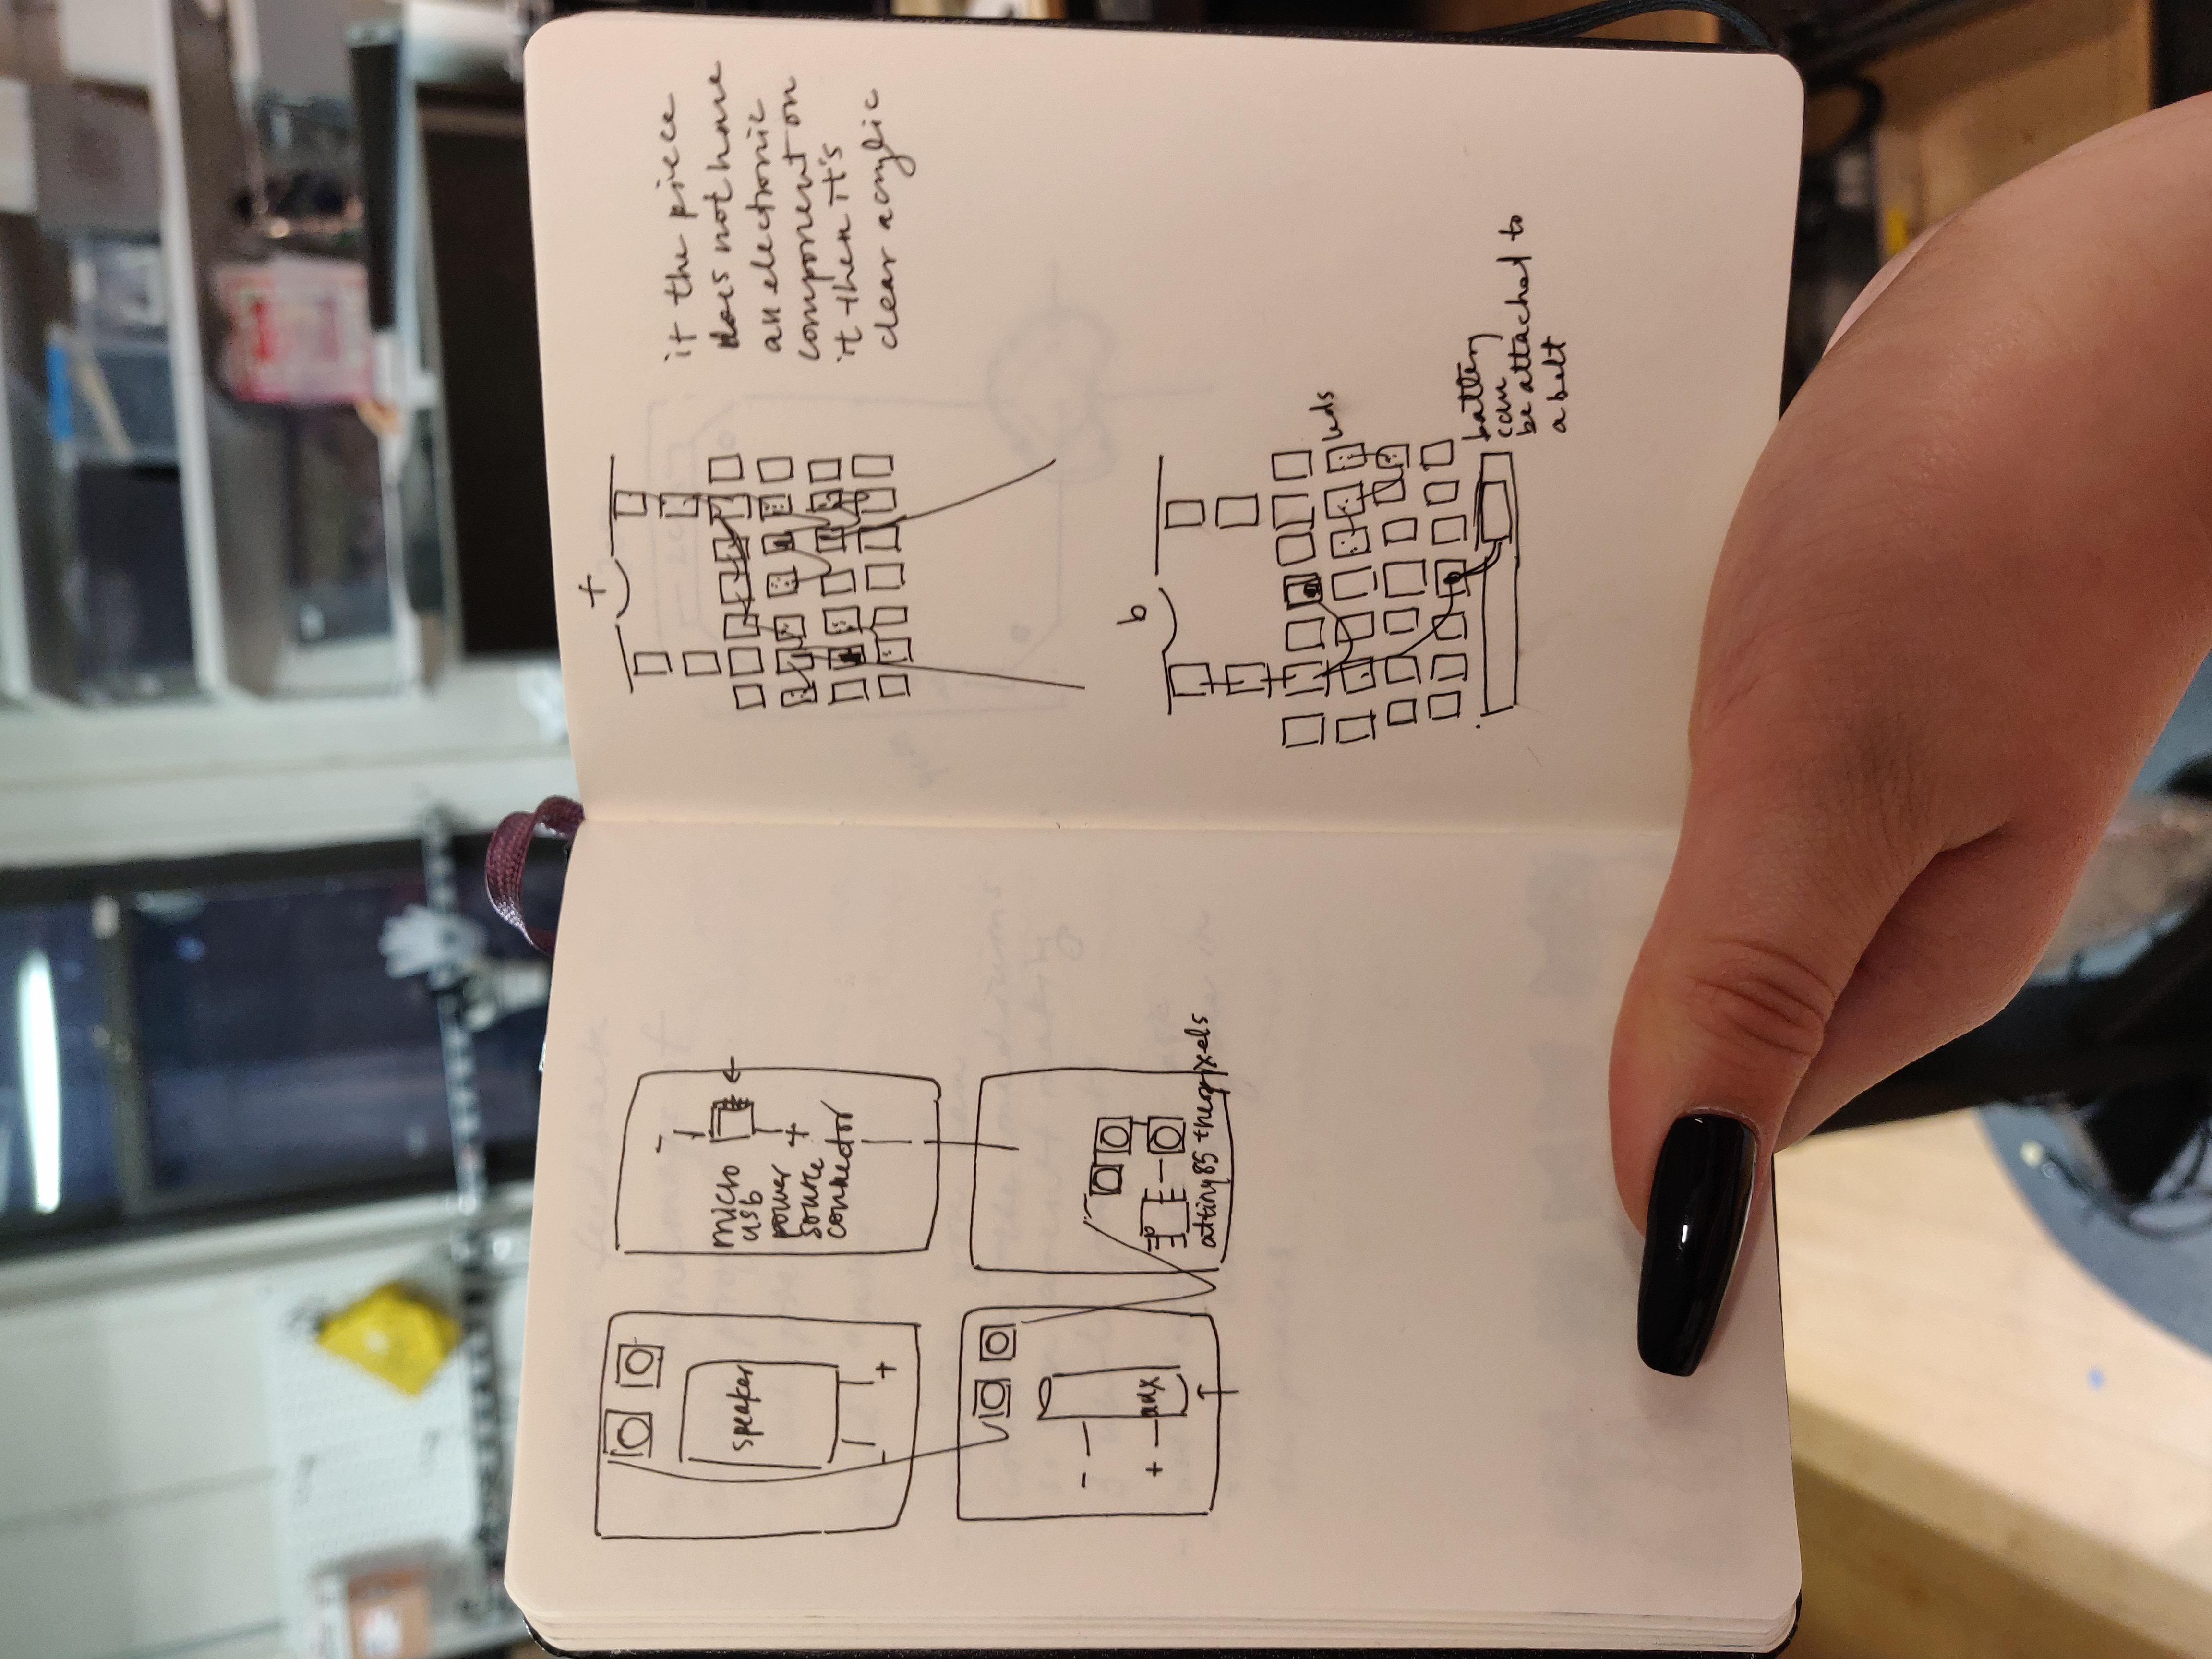 speaker
- +
-
micro
usb
power
source
connector
+
-
+
aux
attiny85 the pixels
f
if the piece
does not have
an electronic
component on
it then it's
clear acrylic
b
leds
battery
can
be attached to
a belt